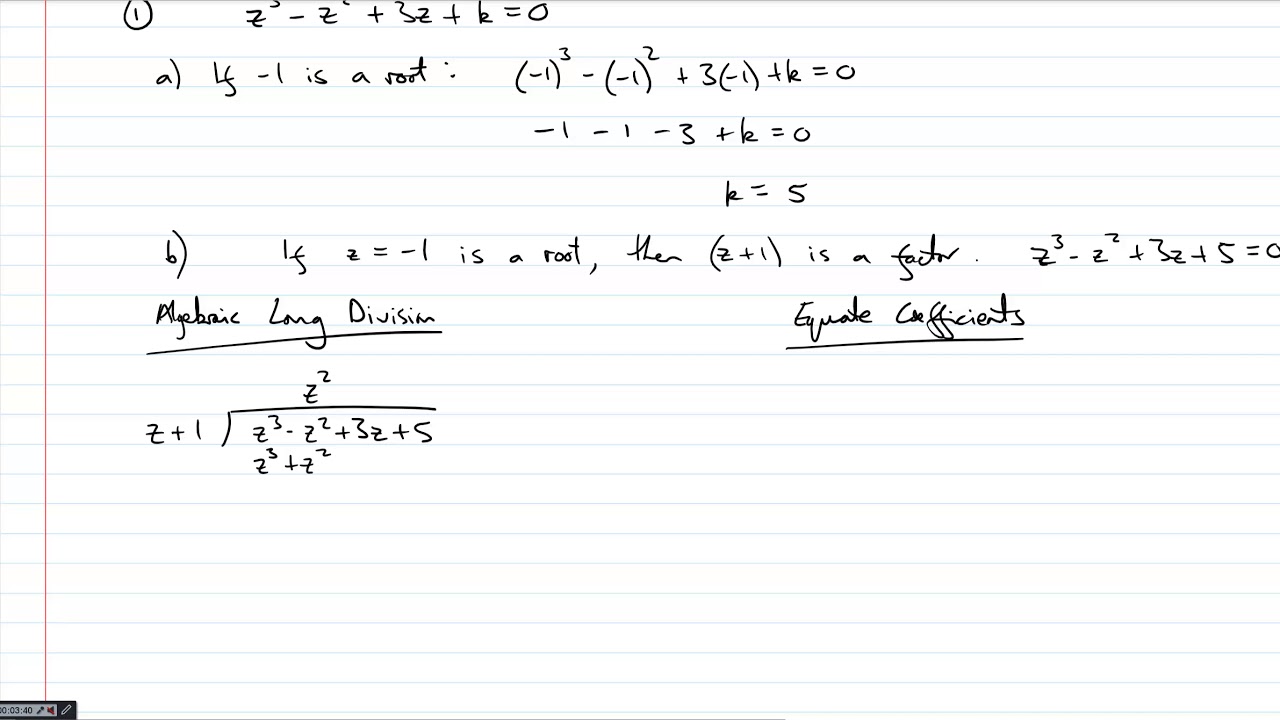 ① z³ - z² + 3z + k = 0
a) If -1 is a root: (-1)³ - (-1)² + 3(-1) + k = 0
-1 - 1 - 3 + k = 0
k = 5
b) If z = -1 is a root, then (z+1) is a factor. z³ - z² + 3z + 5 = 0
Algebraic Long Division
Equate Coefficients
z²
z + 1 ) z³ - z² + 3z + 5
z³ + z²
00:03:40